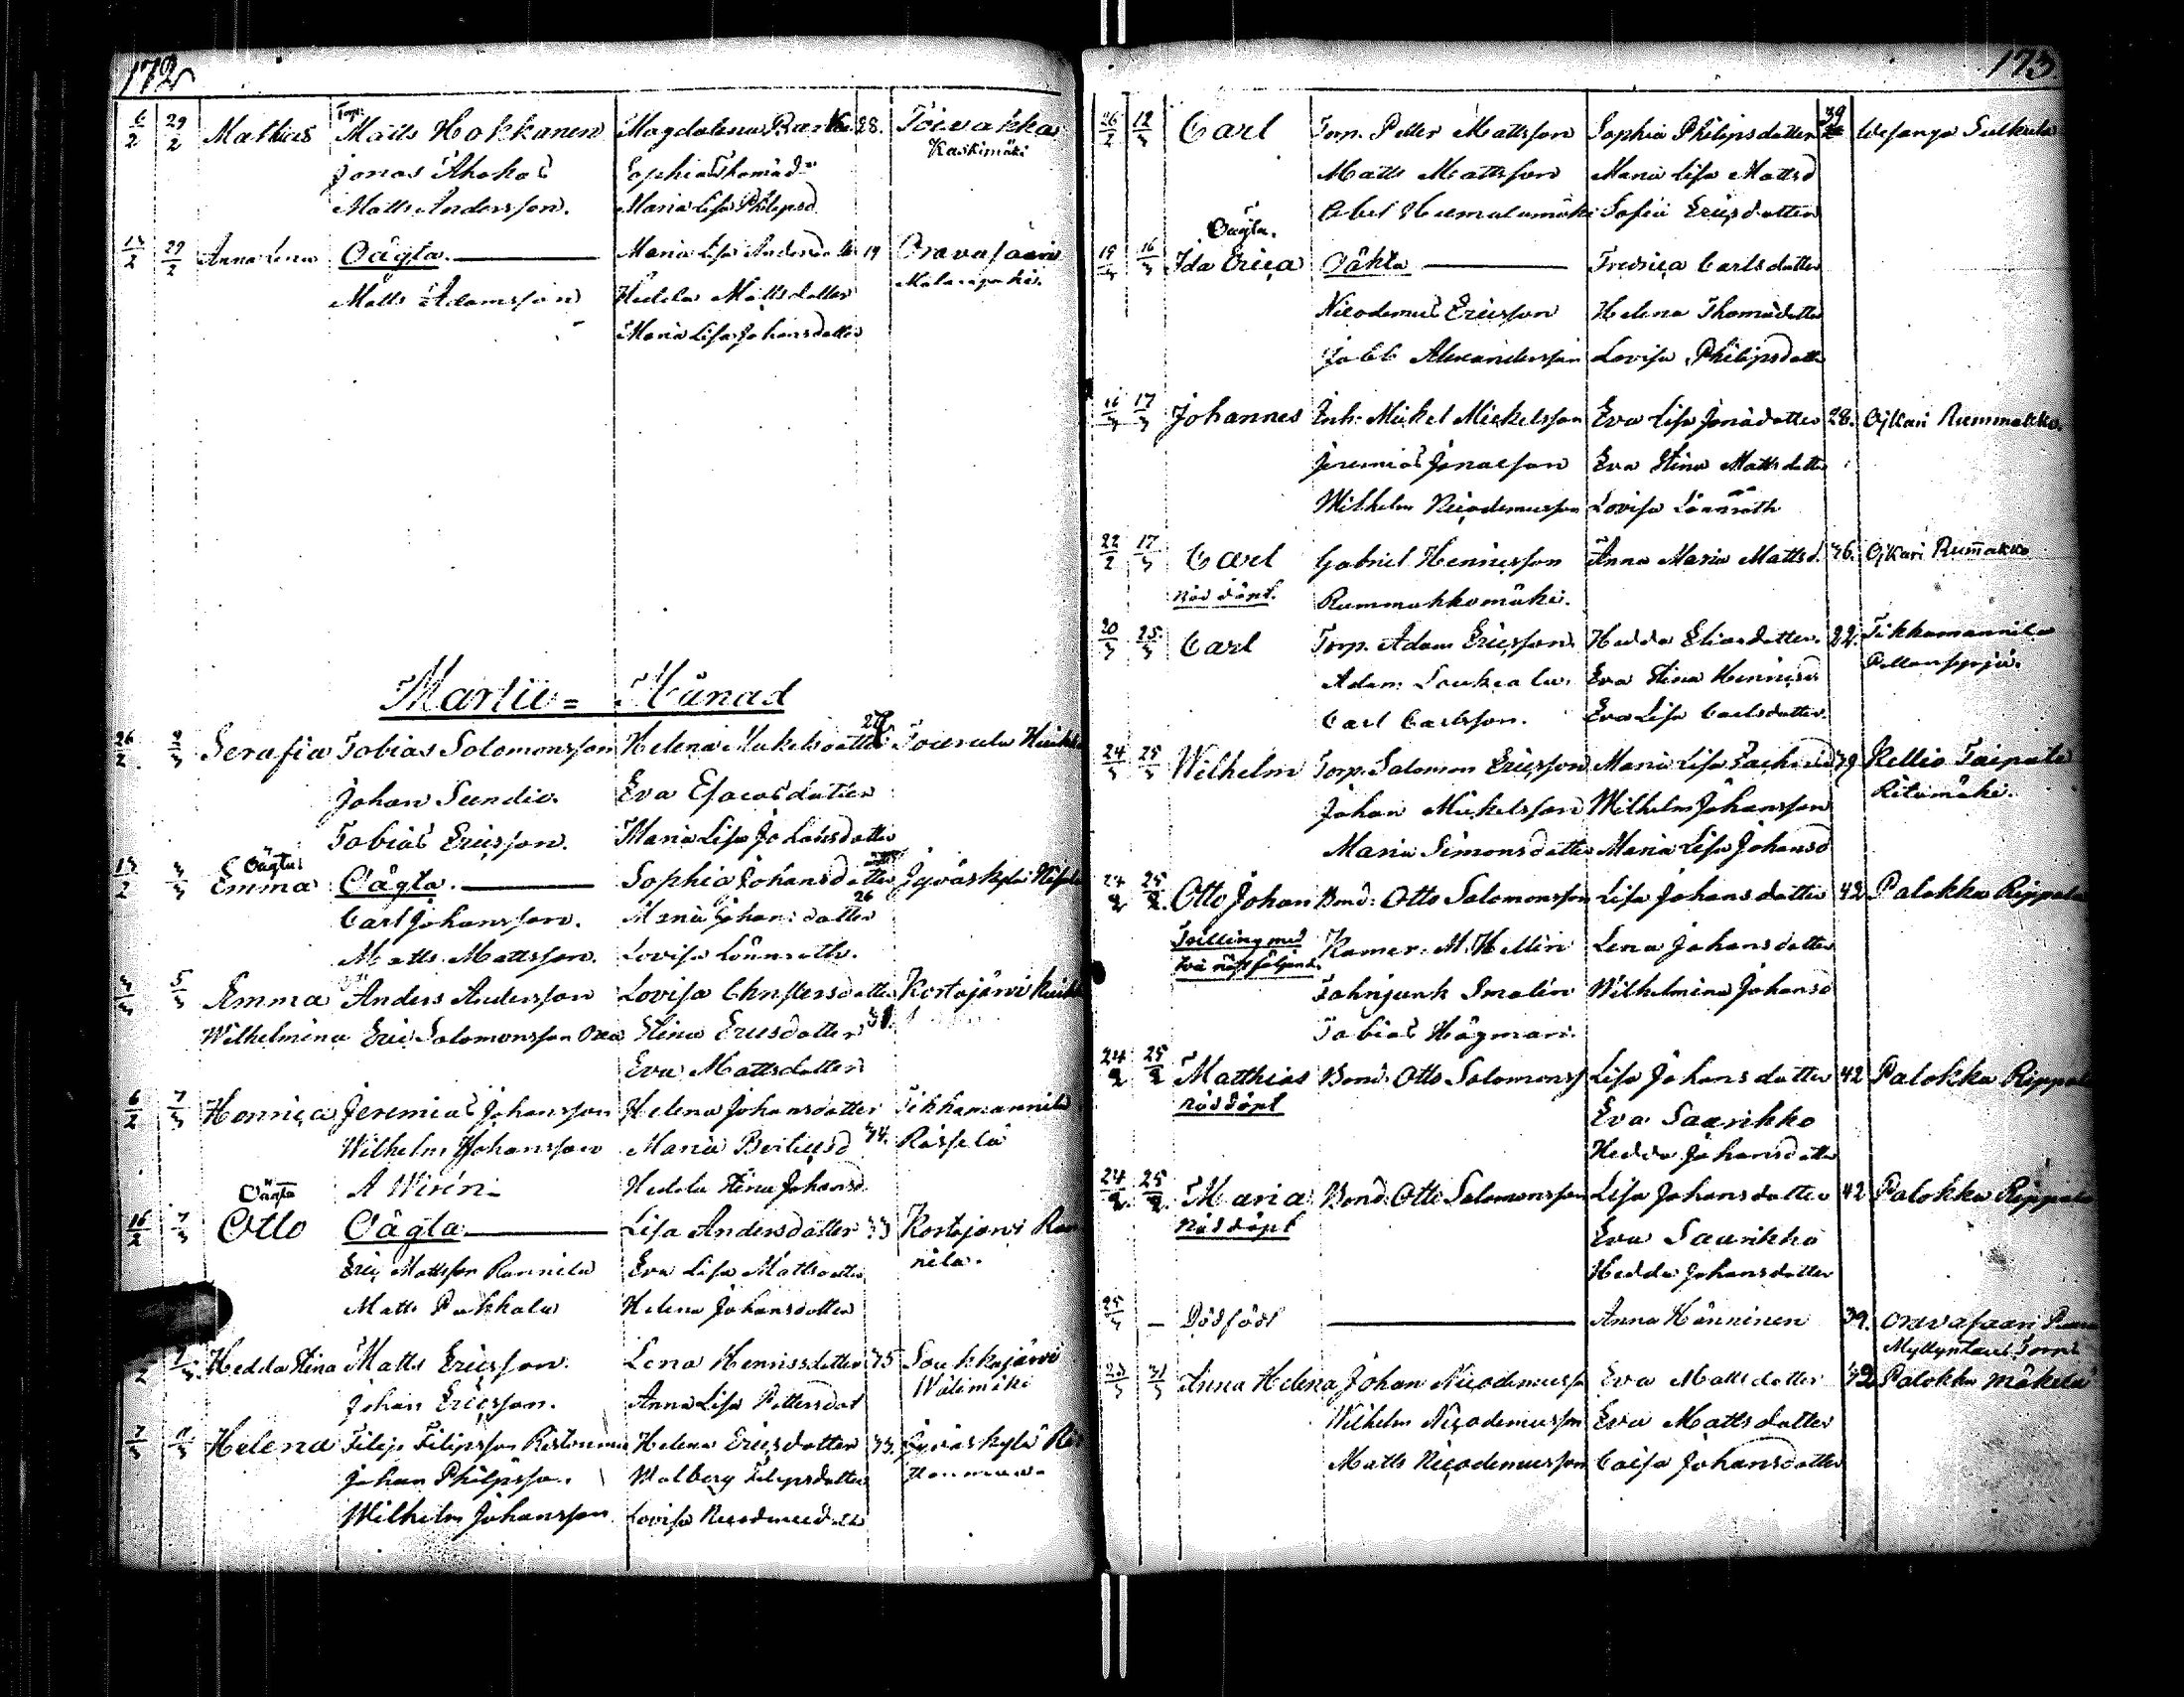 172
6/2 29/2 Mathias Torp. Matts Hokkanen Magdalena 28. Toivakka
Jonas Ahokas Sophia Thomasd:r Kaskimäki
Matts Andersson. Maria Lisa Philipsd
29/2 Anna Lena Oägta Maria Lisa Andersd 19 Oravasaari
Matts Adamsson Hedda Mattsdotter
Maria Lisa Johansdotter
Martii = Månad
26/2 2/3 Serafia Tobias Solomonsson Helena Mickelsdotter
Johan Sundin. Eva Esaiasdotter
Tobias Ericsson. Maria Lisa Johansdotter
Oägta
Emma Oägta. Sophia Johansdotter Jyväskylä
Carl Johansson. Maria Johansdotter 26
Matts Mattsson. Lovisa Lönnroth.
5/3 Emma Anders Andersson Lovisa Christersdotter Kortajärvi
Wilhelmina Eric Solomonsson Stina Ericsdotter
Eva Mattsdotter
6/2 7/3 Henrica Jeremias Johansson Helena Johansdotter Tikkamannila
Wilhelm Johansson Maria 34. Rässälä
A Wirén Hedda Stina Johansd.
Oägta
16/2 7/3 Otto Oägta Lisa Andersdotter 33 Kortajärvi Ran
Eric Mattsson Rannila Eva Lisa Mattsdotter nila.
Matts Pukkala Helena Johansdotter
Hedda Stina Matts Ericsson. Lena Henricsdotter 35 Soukkajärvi
Johan Ericsson. Anna Lisa Pettersdot Wälimäki
Helena Filip Filipsson Helena Ericsdotter 33. Jyväskylä
Johan Philipsson. Walborg Filipsdotter
Wilhelm Johansson Lovisa
173
26/2 12/3 Carl Torp. Petter Mattsson Sophia Philipsdotter 39 Wesanga Sulkula
Matts Mattsson Maria Lisa Mattsd
Abel Sofia Ericsdotter
Oägta.
15/3 16/3 Ida Erica Oäkta Fredrica Carlsdotter
Nicodemus Ericsson Helena Thomasdotter
Jacob Alexandersson Lovisa Philipsdotter
16/3 17/3 Johannes Inh. Mickel Mickelsson Eva Lisa Jonasdotter 28. Ojkari Rummakko.
Jeremias Jonasson Eva Stina Mattsdotter
Wilhelm Nicodemusson Lovisa Lönnroth
22/2 17/3 Carl Gabriel Henricsson Anna Maria Mattsd. 36. Ojkari Rummakko
Nöd döpt. Rummakkomäki.
20/3 25/3 Carl Torp. Adam Ericsson Hedda Eliasdotter. 22. Tikkamannila
Adam Eva Stina Henricsd
Carl Carlsson. Eva Lisa Carlsdotter.
24/3 25/3 Wilhelm Torp. Salomon Ericsson Maria Lisa 39 Keljo Taipale
Johan Mickelsson Wilhelm Johansson Ritomäki.
Maria Simonsdotter Maria Lisa Johansd
24/2 25/2 Otto Johan Bond. Otto Salomonsson Lisa Johansdotter 42 Palokka Rippala
Trilling med Kamer. M. Hellin Lena Johansdotter
två näst följande. Fahnjunk Smalin Wilhelmina Johansd
Tobias Högman.
24/2 25/2 Matthias Bond. Otto Solomonss Lisa Johansdotter 42 Palokka Rippala
nöddöpt Eva Saarikko
Hedda Johansdotter
24/2. 25/2. Maria Bond. Otto Salomonsson Lisa Johansdotter 42 Palokka Rippala
Nöddöpt Eva Saarikko
Hedda Johansdotter
25/3 — Dödfödt Anna Hänninen 39. Oravasaari
31/3 Anna Helena Johan Nicodemuss Eva Mattsdotter Palokka Mäkelä
Wilhelm Nicodemusson Eva Mattsdotter
Matts Nicodemusson Caisa Johansdotter